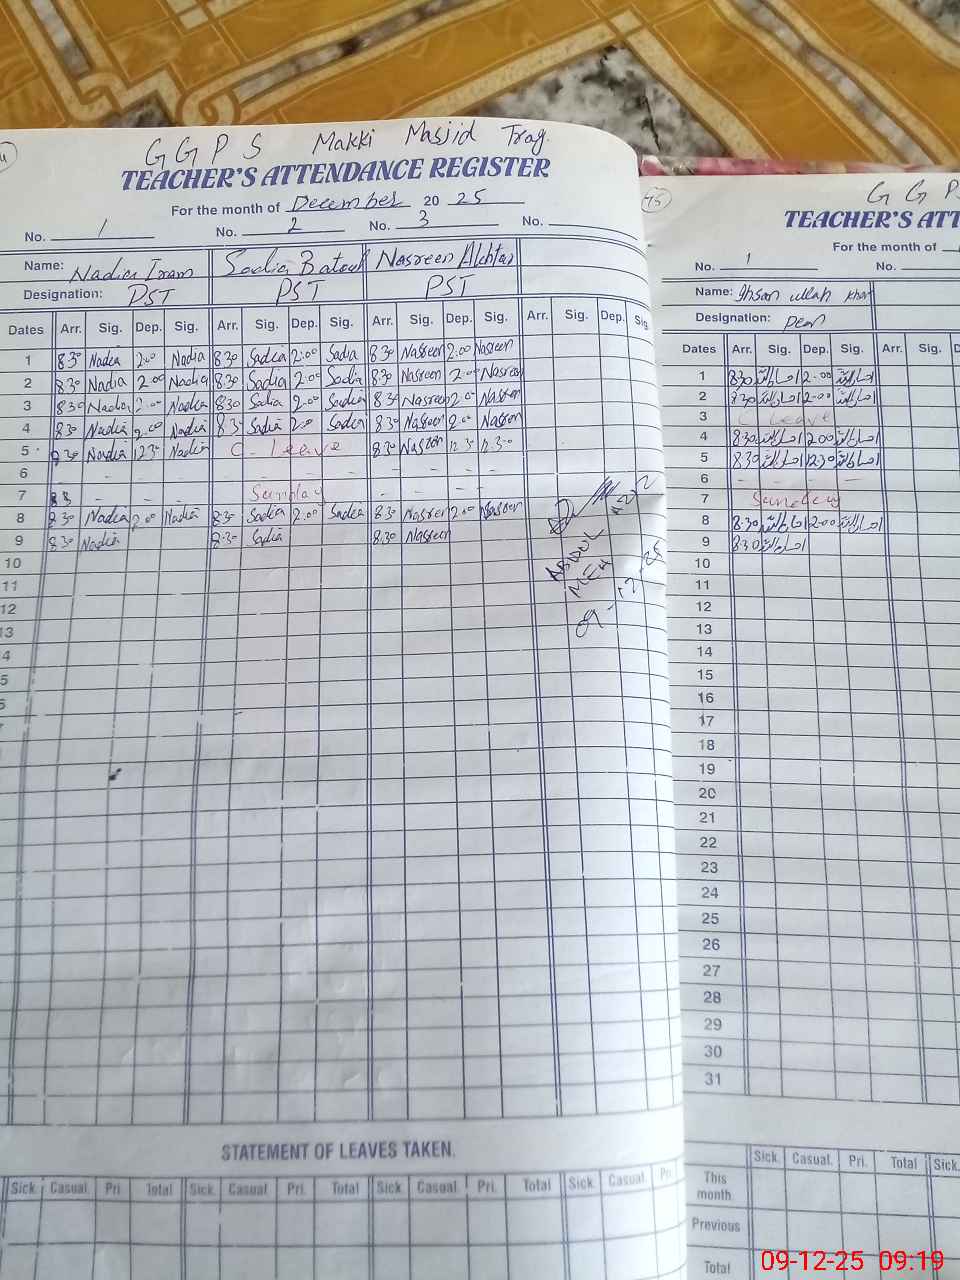 G G P S Makki Masjid Trag.
TEACHER'S ATTENDANCE REGISTER
For the month of December 20 25
No. 1 No. 2 No. 3 No.
Name: Nadia Iram Sadia Batool Nasreen Akhtar
Designation: PST PST PST
Dates Arr. Sig. Dep. Sig. Arr. Sig. Dep. Sig. Arr. Sig. Dep. Sig. Arr. Sig. Dep. Sig.
1 8.30 Nadia 2.00 Nadia 8.30 Sadia 2:00 Sadia 8.30 Nasreen 2.00 Nasreen
2 8.30 Nadia 2.00 Nadia 8.30 Sadia 2.00 Sadia 8.30 Nasreen 2.00 Nasreen
3 8.30 Nadia 2.00 Nadia 8.30 Sadia 2.00 Sadia 8.30 Nasreen 2.00 Nasreen
4 8.30 Nadia 2.00 Nadia 8.30 Sadia 2.00 Sadia 8.30 Nasreen 2.00 Nasreen
5 8.30 Nadia 12.30 Nadia C. Leave 8.30 Nasreen 12.30 12.30
6 - - - - - - - - - - -
7 - - - Sunday - - - -
8 8.30 Nadia 2.00 Nadia 8.30 Sadia 2.00 Sadia 8.30 Nasreen 2.00 Nasreen
9 8.30 Nadia 8.30 Sadia 8.30 Nasreen
ABDUL
9-12-25
10
11
12
13
4
5
STATEMENT OF LEAVES TAKEN.
Sick. Casual. Pri. Total Sick. Casual. Pri. Total Sick. Casual. Pri. Total Sick. Casual. Pri.
45
G G PS
TEACHER'S ATT
For the month of
No. 1 No.
Name: Ihsan ullah khan
Designation: Peon
Dates Arr. Sig. Dep. Sig. Arr. Sig. D
1 8.30 احسان اللہ 2.00 احسان اللہ
2 8.30 احسان اللہ 2.00 احسان اللہ
3 C Leave
4 8.30 احسان اللہ 2.00 احسان اللہ
5 8.30 احسان اللہ 12.30 احسان اللہ
6 - - - -
7 Sunday
8 8.30 احسان اللہ 2.00 احسان اللہ
9 8.30 احسان اللہ
10
11
12
13
14
15
16
17
18
19
20
21
22
23
24
25
26
27
28
29
30
31
Sick. Casual. Pri. Total Sick.
This month
Previous
Total
09-12-25 09:19